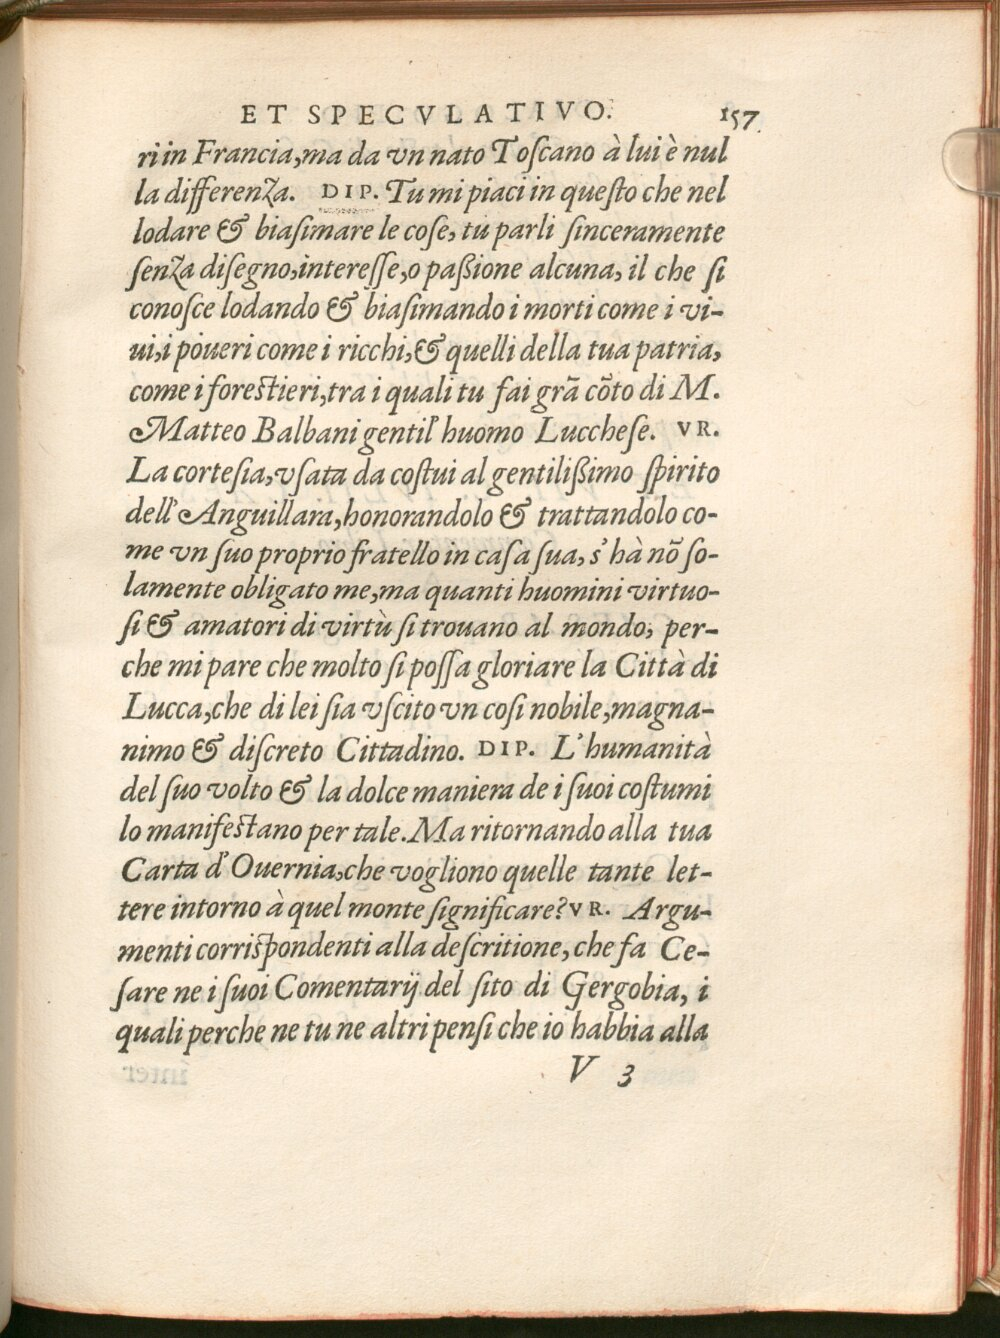 ET SPECVLATIVO. 157
ri in Francia, ma da vn nato Toscano à lui è nul
la differenza. DIP. Tu mi piaci in questo che nel
lodare & biasimare le cose, tu parli sinceramente
senza disegno, interesse, o paßione alcuna, il che si
conosce lodando & biasimando i morti come i vi-
ui, i poueri come i ricchi, & quelli della tua patria,
come i forestieri, tra i quali tu fai grã cõto di M.
Matteo Balbani gentil'huomo Lucchese. VR.
La cortesia, vsata da costui al gentilißimo spirito
dell'Anguillara, honorandolo & trattandolo co-
me vn suo proprio fratello in casa sua, s'hà nõ so-
lamente obligato me, ma quanti huomini virtuo-
si & amatori di virtù si trouano al mondo, per-
che mi pare che molto si possa gloriare la Città di
Lucca, che di lei sia vscito vn cosi nobile, magna-
nimo & discreto Cittadino. DIP. L'humanità
del suo volto & la dolce maniera de i suoi costumi
lo manifestano per tale. Ma ritornando alla tua
Carta d'Ouernia, che vogliono quelle tante let-
tere intorno à quel monte significare? VR. Argu-
menti corrispondenti alla descritione, che fa Ce-
sare ne i suoi Comentarij del sito di Gergobia, i
quali perche ne tu ne altri pensi che io habbia alla
V 3